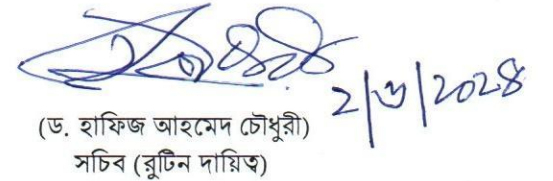 ২|৩|২০২৪
(ড. হাফিজ আহমেদ চৌধুরী)
সচিব (রুটিন দায়িত্ব)